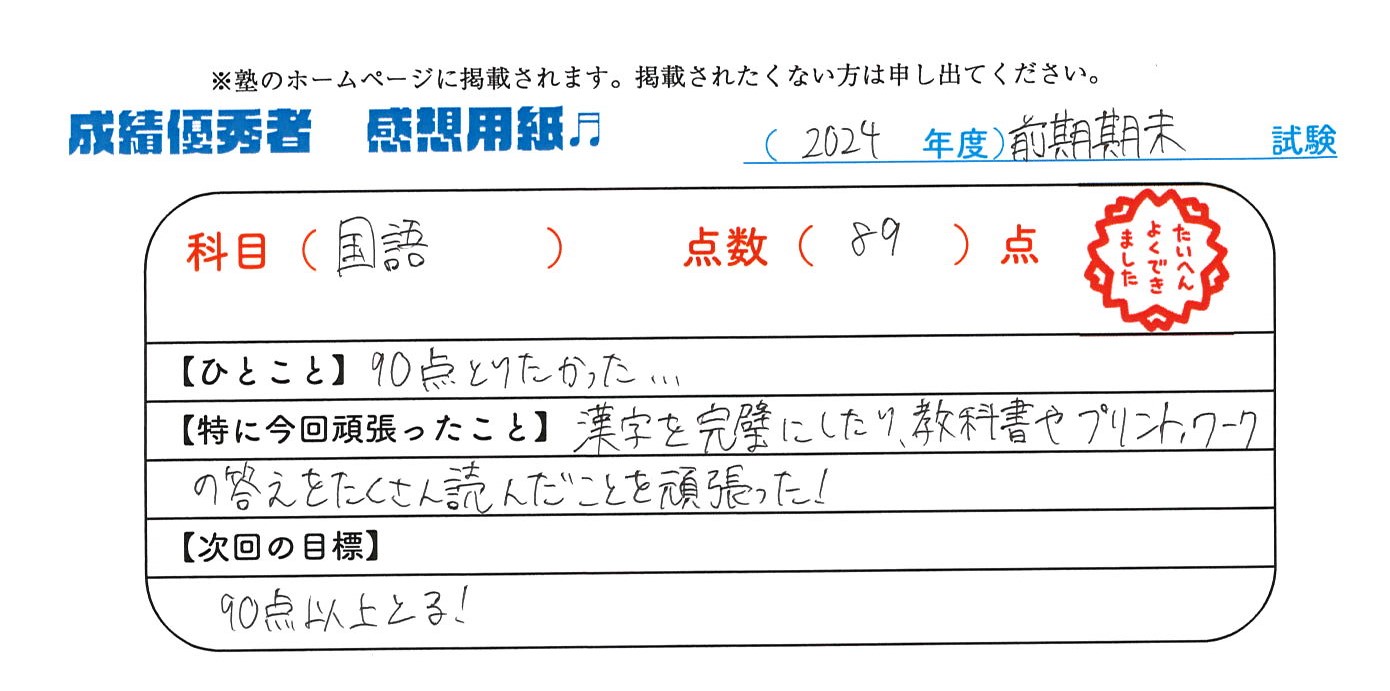 ※塾のホームページに掲載されます。掲載されたくない方は申し出てください。
成績優秀者 感想用紙♬
( 2024 年度)前期期末 試験
科目 ( 国語 ) 点数 ( 89 ) 点
たいへん
よくでき
ました
【ひとこと】90点とりたかった...
【特に今回頑張ったこと】漢字を完璧にしたり、教科書やプリント、ワーク
の答えをたくさん読んだことを頑張った!
【次回の目標】
90点以上とる!